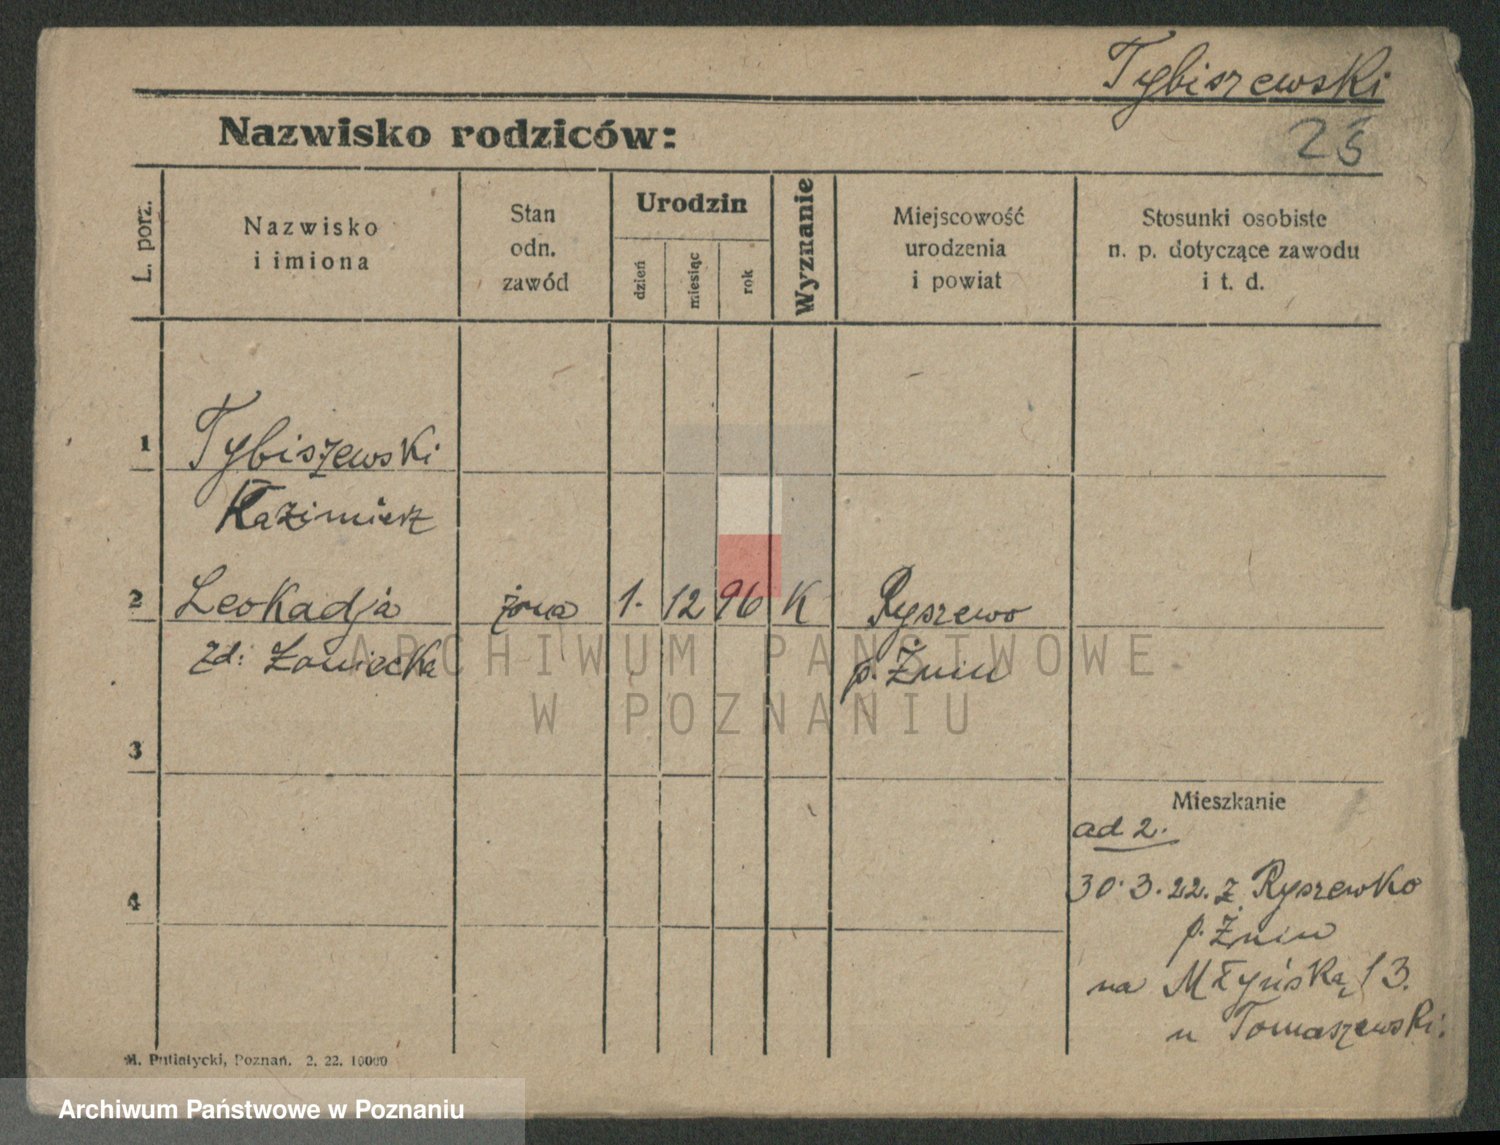 Tybiszewski
Nazwisko rodziców:
25
L. porz.
Nazwisko
i imiona
Stan
odn.
zawód
Urodzin
dzień
miesiąc
rok
Wyznanie
Miejscowość
urodzenia
i powiat
Stosunki osobiste
n. p. dotyczące zawodu
i t. d.
1
Tybiszewski
Kazimierz
2 Leokadja żona 1. 12 96 K Ryszewo
zd: Łaniecka p. Żnin
ARCHIWUM PAŃSTWOWE
W POZNANIU
3
Mieszkanie
ad 2.
4
30.3.22. z Ryszewko
p. Żnin
na Młyńską 13.
u Tomaszewski.
M. Putiatycki, Poznań. 2. 22. 10000
Archiwum Państwowe w Poznaniu